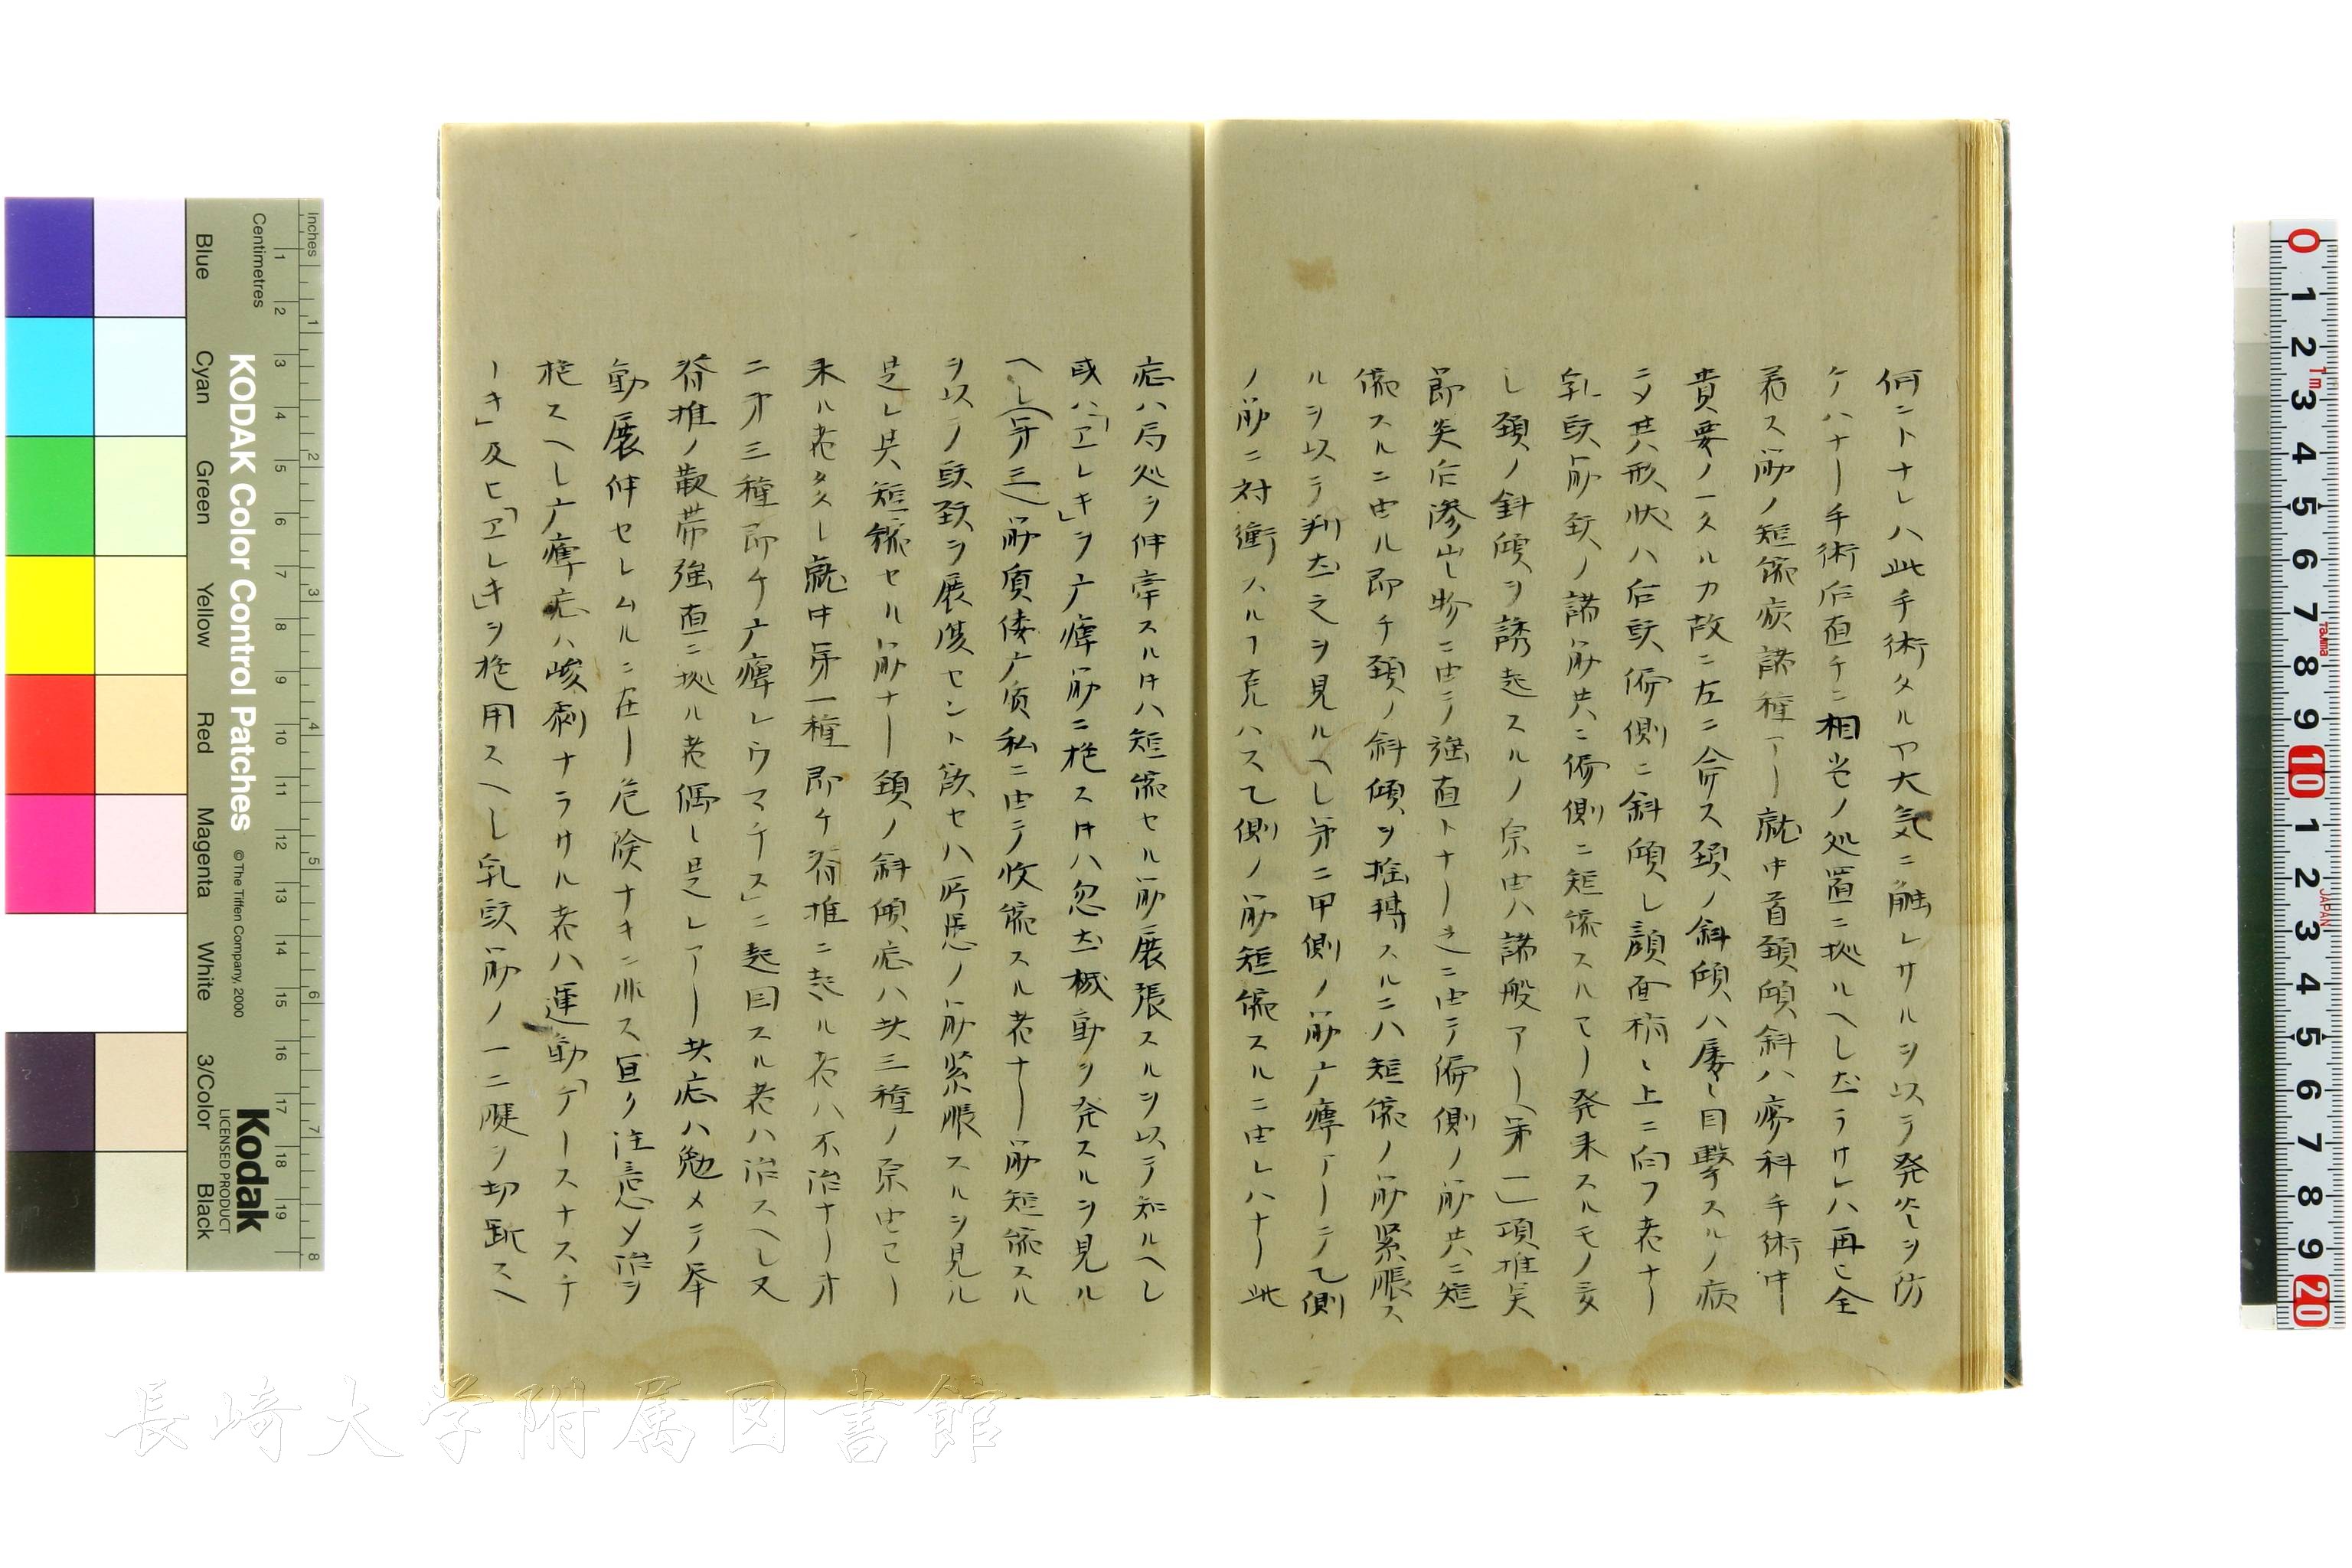 何ントナレハ此手術タルヤ大気ニ触レサルヲ以テ発炎ヲ防
ケハナリ手術后直チニ相当ノ処置ニ拠ルヘし尤ラサレハ再ヒ全
若ス筋ノ短縮病諸種アリ就中首頚傾斜ハ瘍科手術中
貴要ノ一タルカ故ニ左ニ命ス頚ノ斜傾ハ屡々目撃スルノ病
ニメ其形状ハ后頭偏側ニ斜傾し顔面稍々上ニ向フ者ナリ
乳頭筋頚ノ諸筋共ニ偏側ニ短縮スルヿアリ発来スルモノ
し頚ノ斜傾ヲ誘起スルノ原由ハ諸般アリ(第一)項椎
節炎后滲出し物ニ由テ強直トナリ之ニ由テ偏側ノ筋共ニ短
縮スルニ由ル即チ頚ノ斜傾ヲ ニハ短縮ノ筋緊脹ス
ルヲ以テ判 之ヲ見ルヘし第二甲側ノ筋广痺アリテ乙側
ノ筋ニ対衝スルヿ克ハス乙側ノ筋短縮スルニ由レハナリ此
症ハ局処ヲ伸牽スル片ハ短縮セル筋展張スルヲ以テ知ルヘし
或ハ「エレキ」ヲ广痺筋ニ施ス片ハ忽 動ヲ発スルヲ見ル
へし(第三)筋質僂广质私ニ由テ收縮スル者ナリ筋短縮スル
ヲ以テ頭頚ヲ展 セント欲セハ所患ノ筋緊脹スルヲ見ル
是レ其短縮セル筋ナリ頚ノ斜傾症ハ共三種ノ原由ヨリ
来ル者タし就中第一種即チ脊椎ニ起ル者ハ不治ナリ
ニ才三種即チ广痺レウマチス」ニ起因スル者ハ治スヘし又
脊椎ノ 帯強直ニ拠ル者偶し是レアリ其症ハ勉メテ
動展伸セレムルニ在リ危険ナキニ非ス宜ク注意メ治ヲ
施スヘし广痺症ハ峻劇ナラサル者ハ運動
キ」及ヒ「エレキ」ヲ施用スヘし乳頭筋ノ一二腱ヲ切断スヘ
KODAK Color Control Patches
© The Tiffen Company, 2000
Kodak
LICENSED PRODUCT
Inches
Centimetres
Blue
Cyan
Green
Yellow
Red
Magenta
White
3/Color
Black
長崎大学附属図書館